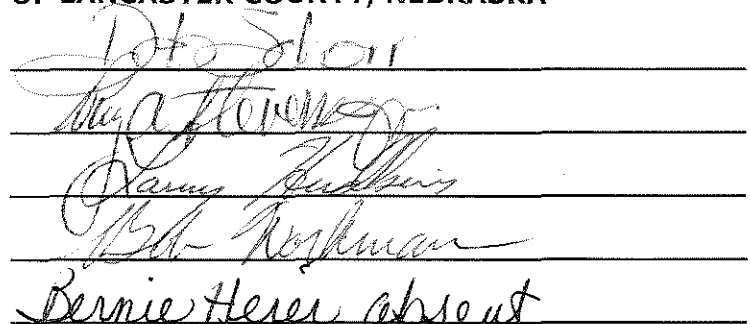 OF LANCASTER COUNTY, NEBRASKA
Deb Schorr
Ray A Stevens
Larry Hudkins
Bob Workman
Bernie Heier absent